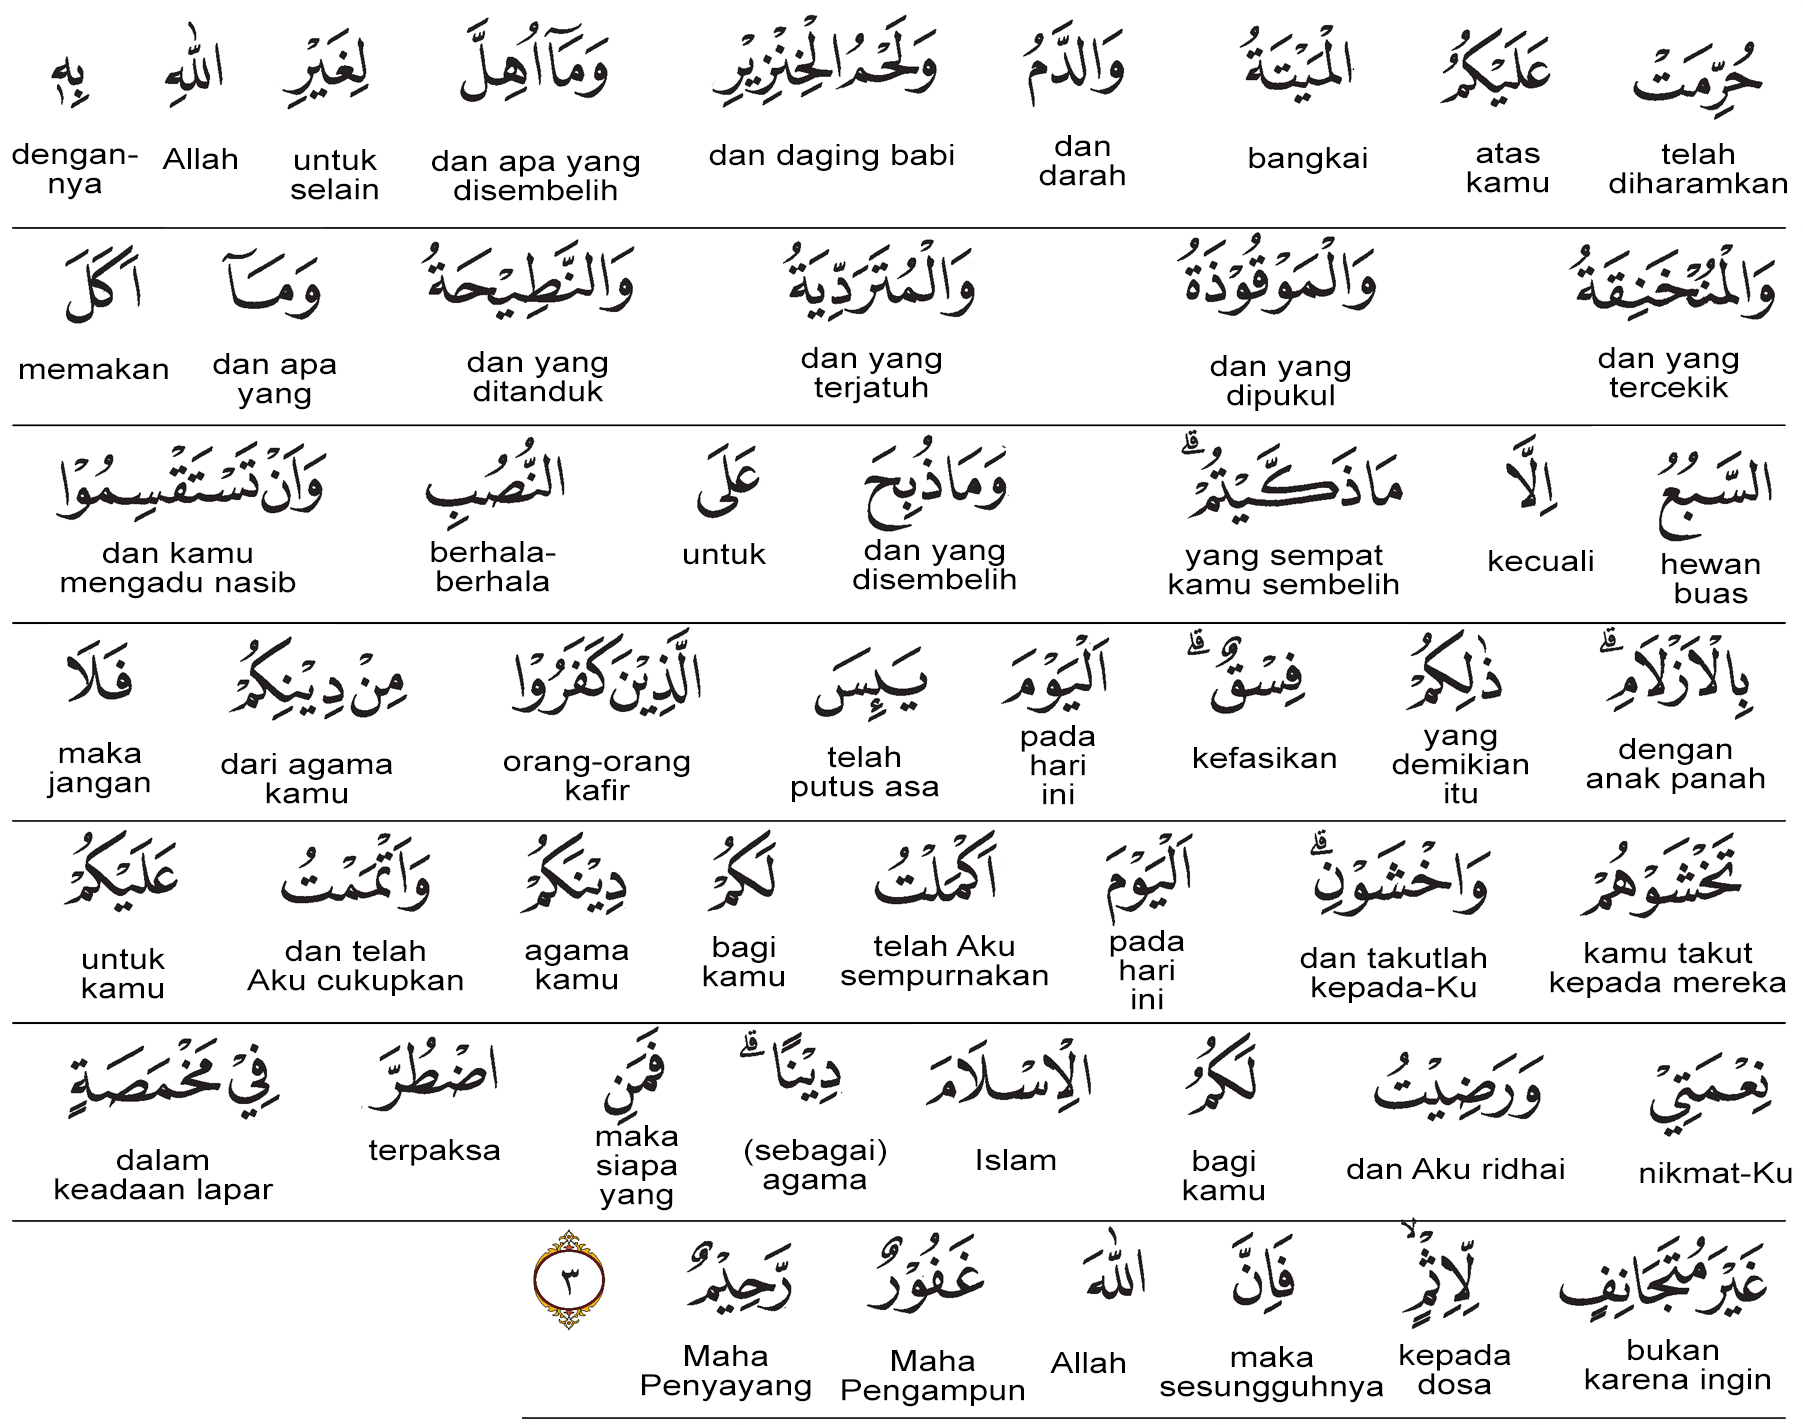 حُرِّمَتْ عَلَيْكُمُ الْمَيْتَةُ وَالدَّمُ وَلَحْمُ الْخِنْزِيْرِ وَمَآ اُهِلَّ لِغَيْرِ اللّٰهِ بِهٖ
telah diharamkan atas kamu bangkai dan darah dan daging babi dan apa yang disembelih untuk selain Allah dengan-nya
وَالْمُنْخَنِقَةُ وَالْمَوْقُوْذَةُ وَالْمُتَرَدِّيَةُ وَالنَّطِيْحَةُ وَمَآ اَكَلَ
dan yang tercekik dan yang dipukul dan yang terjatuh dan yang ditanduk dan apa yang memakan
السَّبُعُ اِلَّا مَا ذَكَّيْتُمْۗ وَمَا ذُبِحَ عَلَى النُّصُبِ وَاَنْ تَسْتَقْسِمُوْا
hewan buas kecuali yang sempat kamu sembelih dan yang disembelih untuk berhala-berhala dan kamu mengadu nasib
بِالْاَزْلَامِۗ ذٰلِكُمْ فِسْقٌۗ اَلْيَوْمَ يَىِٕسَ الَّذِيْنَ كَفَرُوْا مِنْ دِيْنِكُمْ فَلَا
dengan anak panah yang demikian itu kefasikan pada hari ini telah putus asa orang-orang kafir dari agama kamu maka jangan
تَخْشَوْهُمْ وَاخْشَوْنِۗ اَلْيَوْمَ اَكْمَلْتُ لَكُمْ دِيْنَكُمْ وَاَتْمَمْتُ عَلَيْكُمْ
kamu takut kepada mereka dan takutlah kepada-Ku pada hari ini telah Aku sempurnakan bagi kamu agama kamu dan telah Aku cukupkan untuk kamu
نِعْمَتِيْ وَرَضِيْتُ لَكُمُ الْاِسْلَامَ دِيْنًاۗ فَمَنِ اضْطُرَّ فِيْ مَخْمَصَةٍ
nikmat-Ku dan Aku ridhai bagi kamu Islam (sebagai) agama maka siapa yang terpaksa dalam keadaan lapar
غَيْرَ مُتَجَانِفٍ لِّاِثْمٍۙ فَاِنَّ اللّٰهَ غَفُوْرٌ رَّحِيْمٌ ٣
bukan karena ingin kepada dosa maka sesungguhnya Allah Maha Pengampun Maha Penyayang